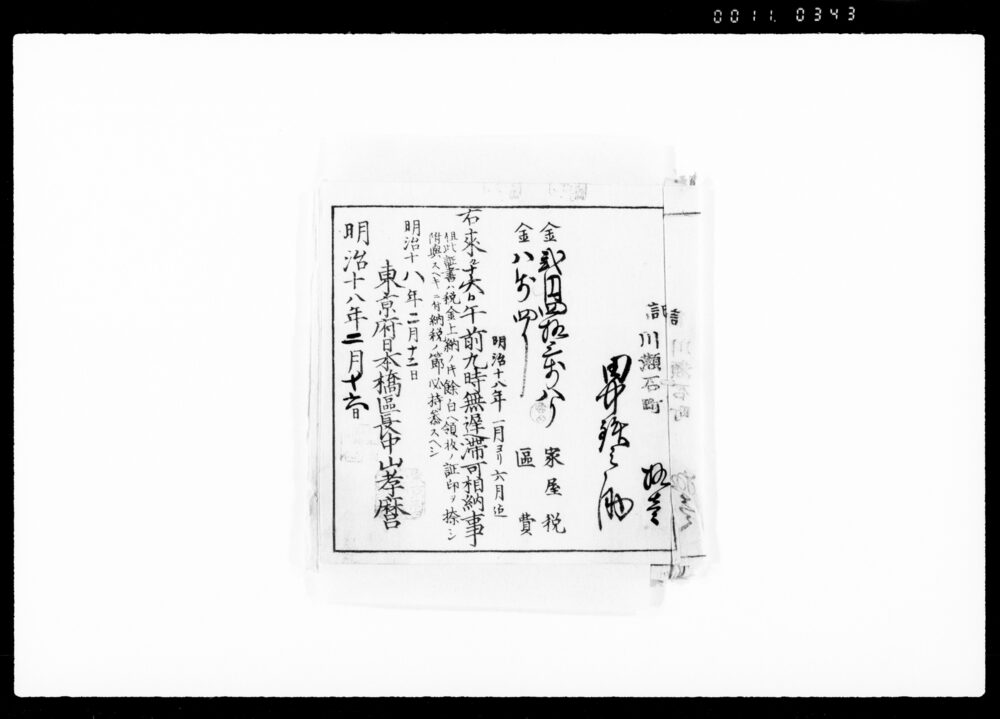 0011. 0343
川瀬石町
金貳円四拾三銭八り 家屋税
金八銭四り 區費
明治十八年一月ヨリ六月迄
右来ル十六日午前九時無遅滞可相納事
但此証書ハ税金上納ノ片餘白ヘ領收ノ証印ヲ捺シ
附與スヘキニ付納税ノ節必持参スヘシ
明治十八年二月十二日
東京府日本橋區長中山孝麿
明治十八年二月十六日